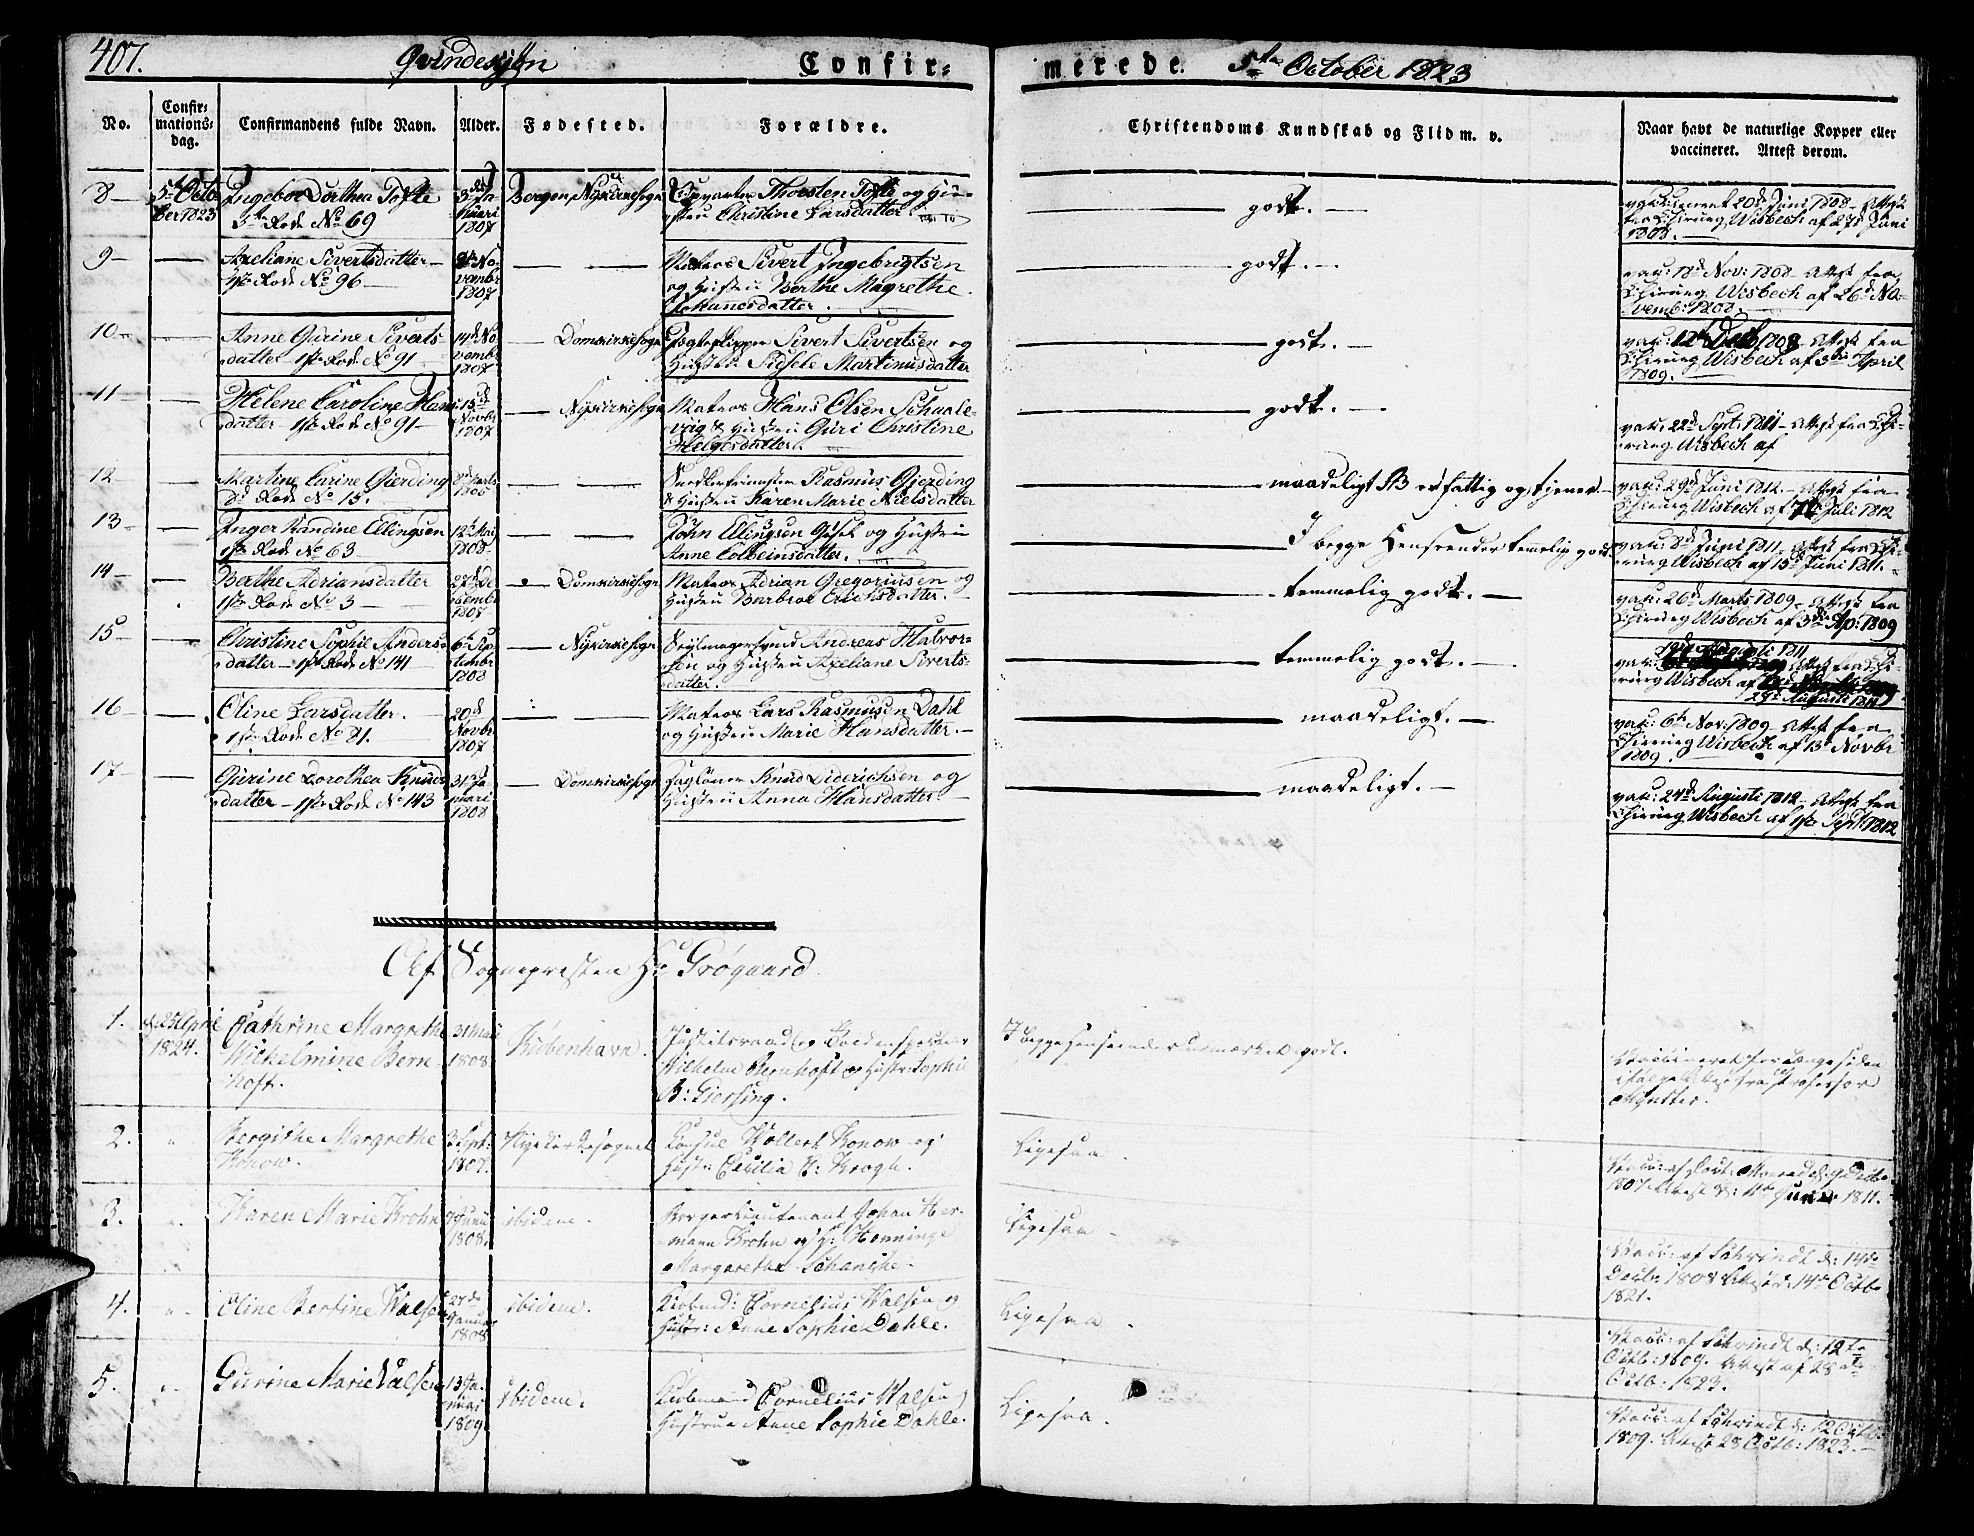 407.
Qvindekjøn
Confir-
merede.
5te October 1823
No.
Confir-
mations-
dag.
Confirmandens fulde Navn.
Alder.
Fødested.
Forældre.
Christendoms Kundskab og Flid m. v.
Naar havt de naturlige Kopper eller
vaccineret. Attest derom.
8 —
5te Octo
ber 1823
Ingebor Dorthea Tofte
3die Rode No 69
3die Ja
nuari
1807
Bergen, Nykirkesogn
Thorsten Tofte og Hu-
stru Christine Larsdatter.
godt. —
vaccineret 20d Juni 1808 - Attest
fra Chirurg Wisbech af 27d Juni
1808. —
9 —
Axeliane Sivertsdatter —
1ste Rode No 96 —
No
vembr
1807
Matros Sivert Ingebrigtsen
og Hustru Berthe Magrethe
Johannesdatter. —
godt. —
vac: 18d Nov: 1808 - Attest fra
Chirurg Wisbech af 26d No-
vemb: 1808. —
10 —
Anne Gurine Siverts-
datter 1ste Rode No 91 —
14d No
vembr
1807
Domkirkesogn
Jagteskipper Sivert Sivertsen og
Hustru Sidsele Martinusdatter
godt. —
vac: 12te Decb 1808 - Attest fra
Chirurg Wisbech af 3die April
1809. —
11 —
Helene Caroline Hans-
datter - 1ste Rode No 91 —
15d
Novbr
1807
Nykirkesogn
Matros Hans Olsen Schaale-
vig & Hustru Guri Christine
Helgesdatter. —
godt. —
vac: 22d Sept: 1811 - Attest fra Chi-
rurg Wisbech af
12 —
Martine Carine Gierding
Rode No 15.
Marts
1805
Rasmus Gierding
& Hustru Karen Marie Axelsdatter
maadeligt NB er fattig og tjener. —
vac: 29d Juni 1812 - Attest fra
Chirurg Wisbech af Juli 1812
13 —
Inger Randine Ellingsen
1ste Rode No 63 —
12te Mai
1808
John Ellingsen Giset og Hustru
Anne Colbeinsdatter.
I begge Henseender temelig godt.
vac: 8d Juni 1811 - Attest fra Chi-
rurg Wisbech af 15d Juni 1811. -
14 —
Berthe Adriansdatter
1ste Rode No 3 —
27d De
cembr
1807
Domkirkesogn
Matros Adrian Gregoriusen og
Hustru Barbroe Erichsdatter. —
temmelig godt. —
vac: 26d Marts 1809 - Attest fra
Chirurg Wisbech af 3die Ap: 1809
15 —
Christine Sophie Anders-
datter - 1ste Rode No 141
6te Sep
tembr
1808
Nykirkesogn
Seglmagersvend Andreas Halvor-
sen og Hustru Axeliane Siverts-
datter. —
temmelig godt. —
19de Augusti 1811
vac: Attest fra Chi
rurg Wisbech af
29de Augusti 1811
16 —
Eline Larsdatter.
1ste Rode No 81. —
20d
Novbr
1807
Matros Lars Rasmusen Dahl
og Hustru Marie Hansdatter. —
maadeligt. —
vac: 6te Nov: 1809 Attest fra
Chirurg Wisbech af 13d Novbr
1809. —
17 —
Gurine Dorothea Knuds-
datter - 1ste Rode No 143
31d Ja
nuari
1808
Domkirkesogn
Dagløner Knud Diderichsen og
Hustru Anna Hansdatter. —
maadeligt. —
vac: 24d Augusti 1812 - Attest fra
Chirurg Wisbech af 1ste Sept: 1812
Af Sognepresten Hr Grøgaard.
1.
d. 25 April
1824.
Cathrine Margrethe
Wilhelmine Bern-
hoft.
31 Mai
1808
Kiøbenhavn.
Justitsraad og
Wilhelm Bernhoft og Hustr: Sophie
B: Giessing.
I begge Henseender udmærket godt.
Vaccineret for længe siden
ifølge Attest fra Professor
Mynster.
2.
"
Bergithe Margrethe
Konow.
3 Sept:
1807.
Nyekirkesognet
Consul Wollert Konow og
Hustr: Cecilia C: Krogh.
Ligesaa.
Vacc: af Doct: d: 9 Decb:
1807. Attest d: 11te Juni 1811.
3.
"
Karen Marie Krohn
7 Juni
1808.
ibidem.
Borgerlieutenant Johan Her-
mann Krohn og H: Henninge
Margaretha Schanche.
Ligesaa.
Vacc: af Schwindt d: 14de
Decbr. 1808 Attest d: 14de Octb.
1821.
4.
"
Eline Bertine Walsen
27de
Januar
1808
ibidem.
Kiøbmd: Cornelius Walsen og
Hustr: Anne Sophie Dahle.
Ligesaa.
Vacc: af Schwindt d: 12te
Octb: 1809. Attest af 28de
Octb: 1823.
5.
"
Gurine Marie Walsen
13 Ja
nuar
1809.
ibidem.
Kiøbmand Cornelius Walsen og
Hustrue Anne Sophie Dahle.
Ligesaa.
Vacc: af Schwindt d: 12 Octb:
1809. Attest 28 Octb: 1823. —